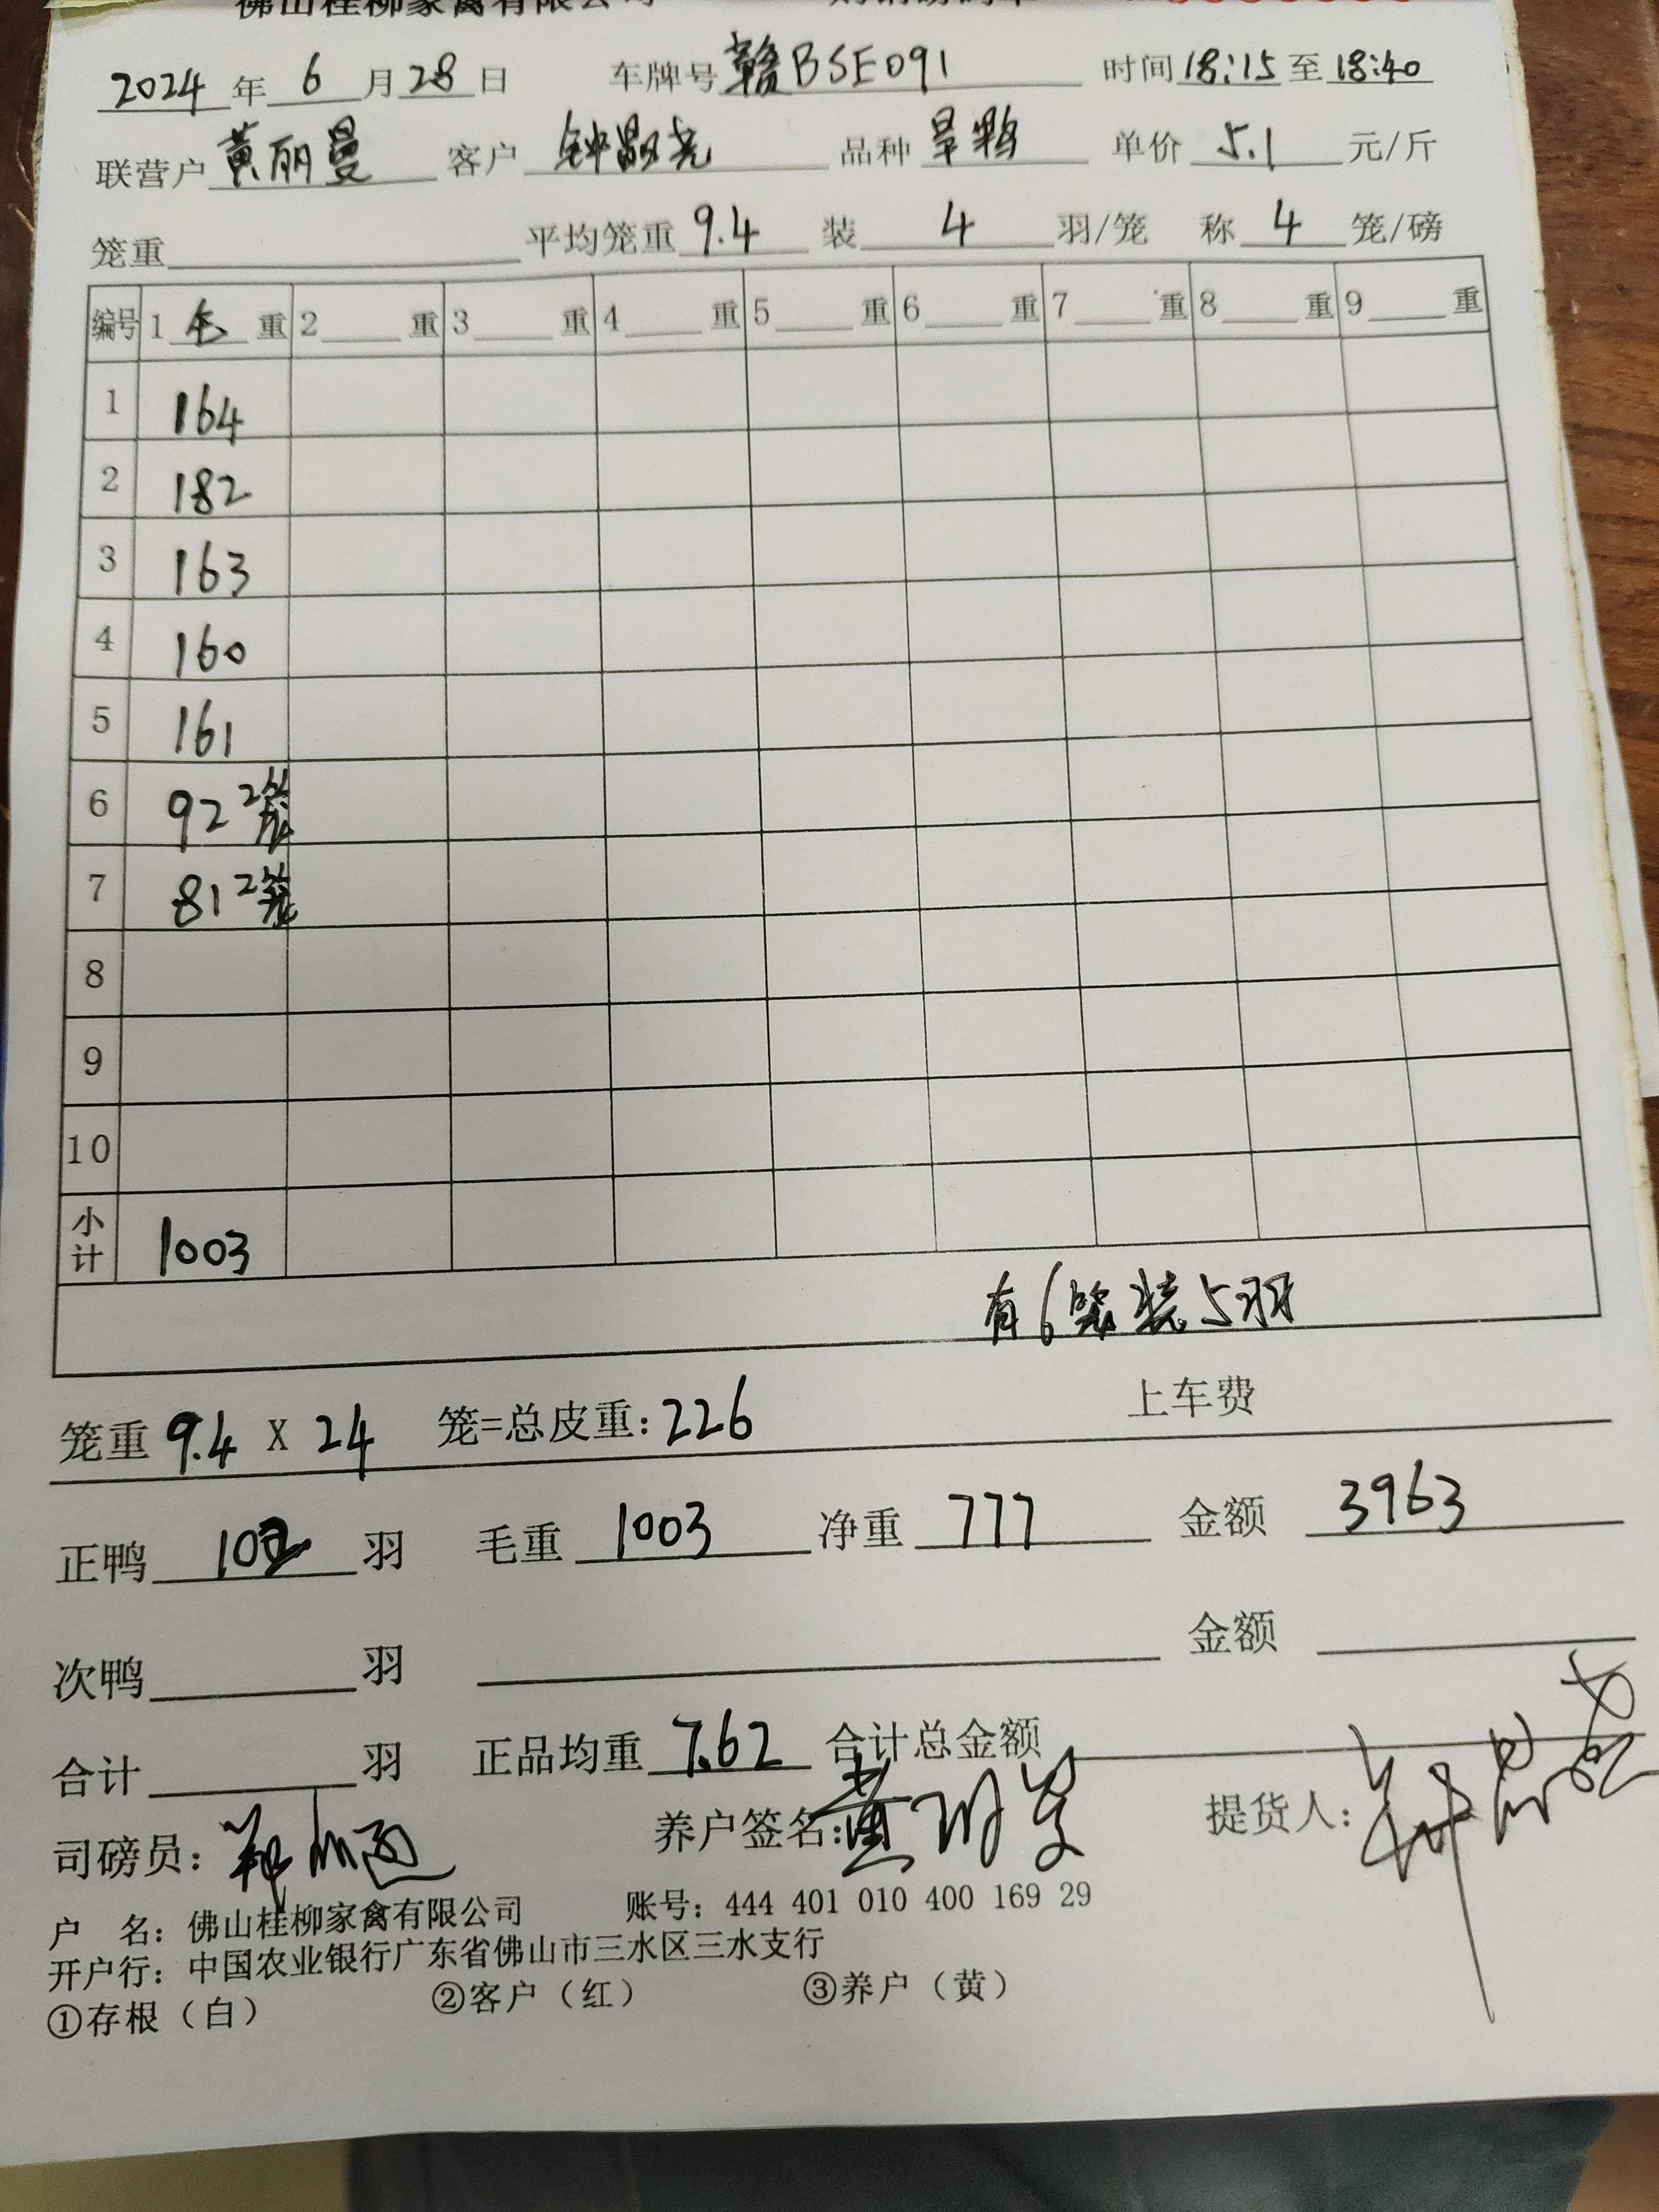 佛山桂柳家禽有限公司
2024 年 6 月 28 日 车牌号 赣BSE091 时间 18:15 至 18:40
联营户 黄丽曼 客户 钟 品种 旱鸭 单价 5.1 元/斤
笼重 平均笼重 9.4 装 4 羽/笼 称 4 笼/磅
编号 1 毛 重 2 重 3 重 4 重 5 重 6 重 7 重 8 重 9 重
1 164
2 182
3 163
4 160
5 161
6 92 2笼
7 81 2笼
8
9
10
小计 1003
有6笼装5羽
笼重 9.4 X 24 笼=总皮重: 226 上车费
正鸭 102 羽 毛重 1003 净重 777 金额 3963
次鸭 羽 金额
合计 羽 正品均重 7.62 合计总金额
司磅员: 养户签名: 黄丽曼 提货人: 钟
户 名: 佛山桂柳家禽有限公司 账号: 444 401 010 400 169 29
开户行: 中国农业银行广东省佛山市三水区三水支行
①存根（白） ②客户（红） ③养户（黄）